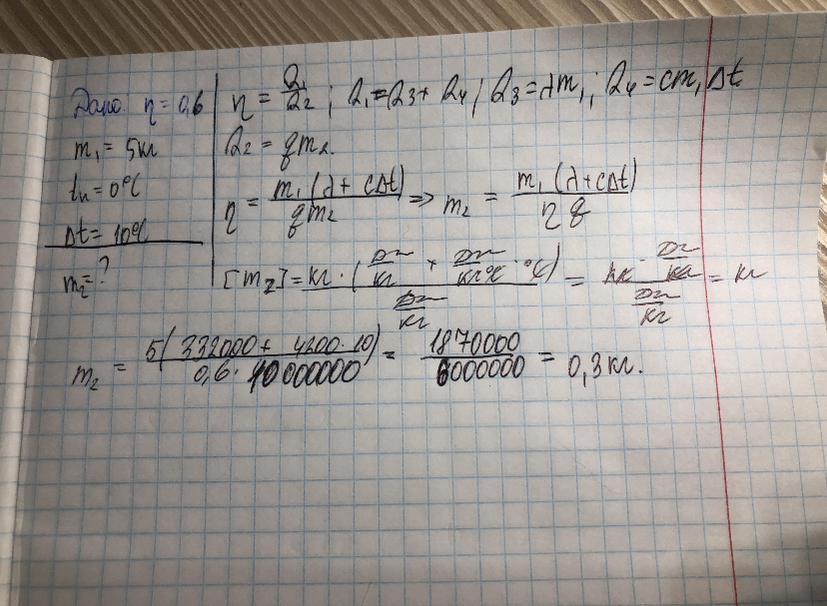 Дано: η = 0,6
m₁ = 5кг
tн = 0°C
Δt = 10°C
m₂ = ?
η = Q₁/Q₂ ; Q₁ = Q₃ + Q₄ ; Q₃ = λm₁ ; Q₄ = cm₁Δt
Q₂ = qm₂.
η = m₁(λ + cΔt)/qm₂ => m₂ = m₁(λ + cΔt)/ηq
[m₂] = кг · (Дж/кг + Дж/кг°C · °C) / Дж/кг = кг · Дж/кг / Дж/кг = кг
m₂ = 5(332000 + 4200 · 10)/0,6 · 10000000 = 1870000/6000000 = 0,3кг.